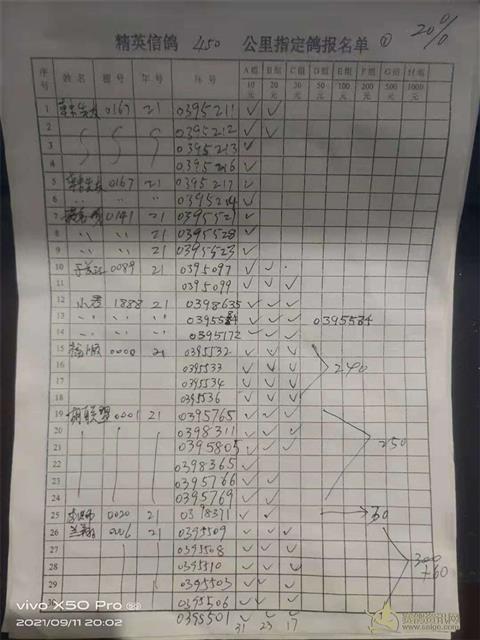 精英信鸽 450 公里指定鸽报名单 ① 20%
序号 姓名 棚号 年号 环号 A组10元 B组20元 C组30元 D组50元 E组100元 F组200元 G组500元 H组1000元
1 0167 21 0395211 ✓ ✓
2 0395212 ✓ ✓
3 0395213 ✓
4 0395216 ✓
5 0167 21 0395217 ✓
6 0395214 ✓
7 0141 21 0395521 ✓
8 21 0395528 ✓
9 21 0395523 ✓
10 0089 21 0395097 ✓ ✓
11 0395099 ✓ ✓ ✓
12 小君 1888 21 0398635 ✓ ✓ ✓
13 ✓ ✓ ✓ 0395584
14 0395172 ✓ ✓ ✓
15 0000 21 0395532 ✓ ✓ ✓
16 0395533 ✓ ✓ ✓
17 0395534 ✓ ✓ ✓ 240
18 0395536 ✓ ✓ ✓
19 胡联盟 0001 21 0395765 ✓ ✓ ✓
20 0398311 ✓ ✓ ✓
21 0395805 ✓ ✓ ✓ 250
22 0398365 ✓
23 0395766 ✓ ✓
24 0395769 ✓ ✓
25 0020 21 0398371 ✓ ✓ 30
26 兰翔 21 0395509 ✓ ✓ ✓
27 0395508 ✓ ✓ ✓
28 0395510 ✓ ✓ ✓ 300
+60
29 0395503 ✓ ✓ ✓
30 0395506 ✓ ✓ ✓
0395501 ✓ ✓ ✓
31 23 17
vivo X50 Pro
2021/09/11 20:02